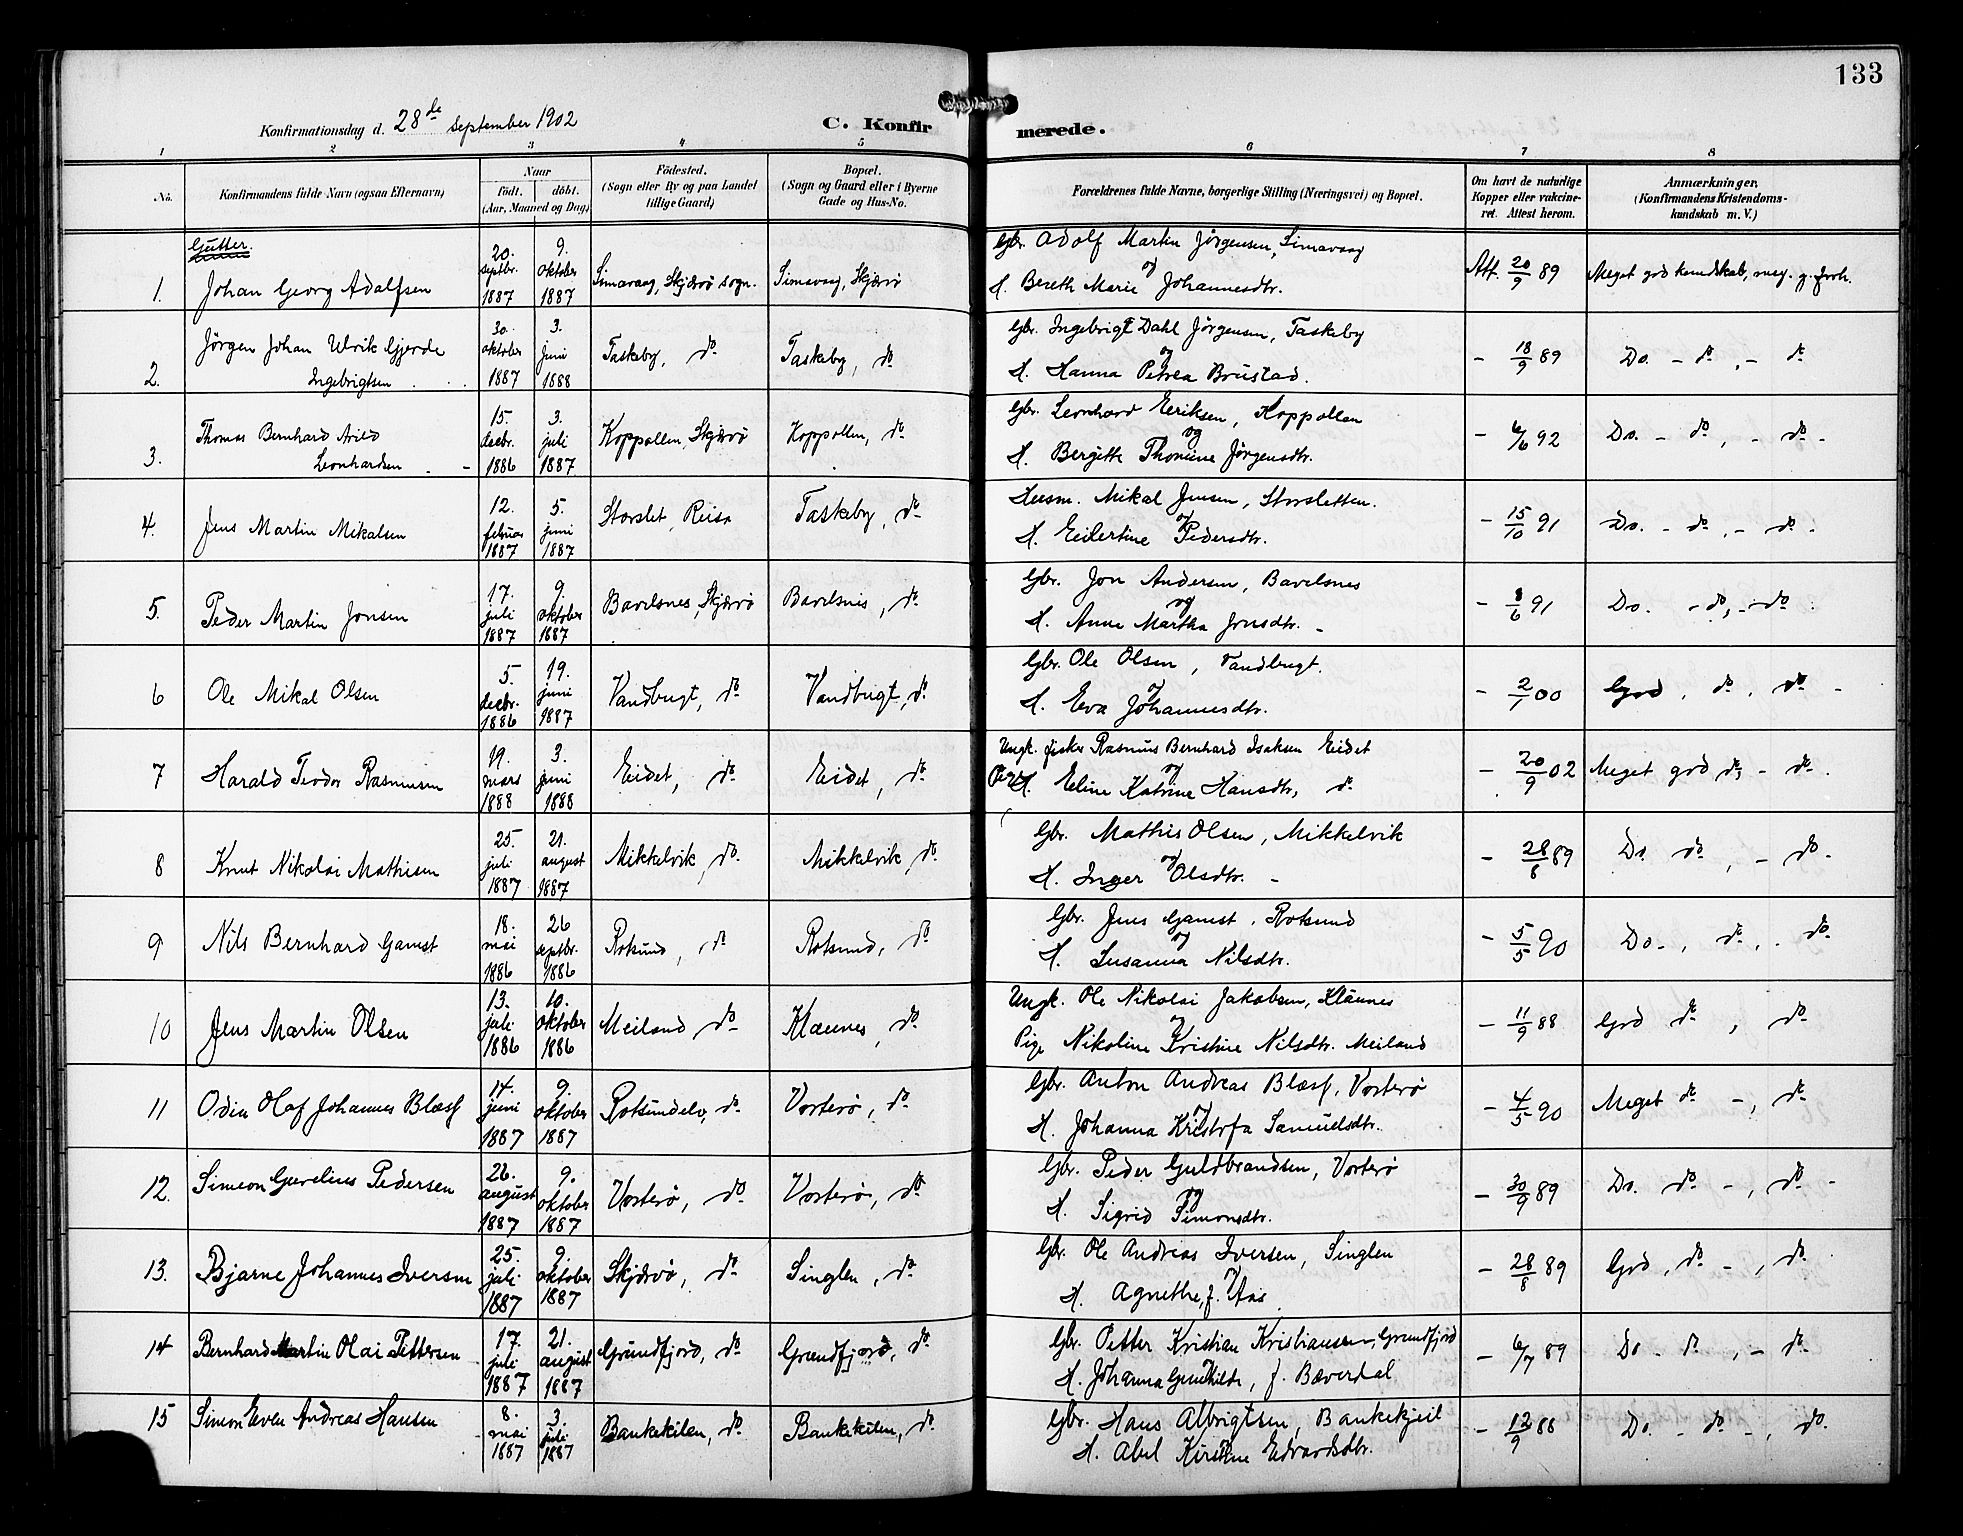 133
Konfirmationsdag d. 28de September 1902
C. Konfirmerede.
1 2 3 4 5 6 7 8
No. Konfirmandens fulde Navn (ogsaa Efternavn) Naar født. døbt. (Aar, Maaned og Dag) Fødested. (Sogn eller By og paa Landet tillige Gaard) Bopæl. (Sogn og Gaard eller i Byerne Gade og Hus-No. Forældrenes fulde Navne, borgerlige Stilling (Næringsvei) og Bopæl. Om havt de naturlige Kopper eller vakcineret. Attest herom. Anmærkninger. (Konfirmandens Kristendomskundskab m. V.)
Gutter.
1. Johan Georg Adolfsen 20. septbr. 1887 9. oktober 1887 Simavaag, Skjærvø sogn. Simavaag, Skjærvø
Gbr. Adolf Martin Jørgensen, Simavaag
og
H. Bereth Marie Johannesdtr. Att. 20/9 89 Meget god kundskab, meg. g. forh.
2. Jørgen Johan Ulrik Gjerde
Ingebrigtsen 30. oktober 1887 3. juni 1888 Taskeby, do Taskeby, do
Gbr. Ingebrigt Dahl Jørgensen, Taskeby
og
H. Hanna Petrea Brustad. - 18/9 89 Do. - do, - do
3. Thomas Bernhard Arild
Leonhardsen 15. decbr. 1886 3. juli 1887 Koppollen, Skjærvø Koppollen, do
Gbr. Leonhard Eriksen, Koppollen
og
H. Bergitte Thomine Jørgensdtr. - 6/6 92 Do. - do, - do -
4. Jens Martin Mikalsen 12. februar 1887 5. juni 1887 Storslet, Reisa Taskeby, do
Husm. Mikal Jensen, Storsletten.
og
H. Eilertine Pedersdtr. - 15/10 91 Do. - do, - do -
5. Peder Martin Jonsen 17. juli 1887 9. oktober 1887 Bavelsnes, Skjærvø Bavelsnes, do
Gbr. Jon Andersen, Bavelsnes
og
H. Anne Martha Jonsdtr. - - 8/6 91 Do. - do, - do
6 Ole Mikal Olsen 5. decbr. 1886 19. juni 1887 Vandbugt, do Vandbugt, do
Gbr. Ole Olsen, Vandbugt.
og
H. Eva Johannesdtr. - 2/1 00 God, do, do -
7 Harald Teodor Rasmussen 19. mars 1888 3. juni 1888 Eidet, do Eidet, do
Ungk. fisker Rasmus Bernhard Isaksen Eidet
og
H. Eline Katrine Hansdtr, do - 20/9 02 Meget god do, - do.
8 Knut Nikolai Mathisen 25. juli 1887 21. august 1887 Mikkelvik, do Mikkelvik, do
Gbr. Mathis Olsen, Mikkelvik
og
H. Inger Olsdtr. - - 28/8 89 Do. do, - do -
9 Nils Bernhard Gamst 18. mai 1886 26 septbr. 1886 Rotsund, do Rotsund, do
Gbr. Jens Gamst, Rotsund
og
H. Susanna Nilsdtr. - 5/5 90 Do -, do, . do
10 Jens Martin Olsen 13. juli 1886 10. oktober 1886 Meiland, do Klaunes, do
Ungk. Ole Nikolai Jakobsen, Klaunes
og
Pige Nikoline Kristine Nilsdtr. Meiland - 11/9 88 God do, do
11 Odin Olaf Johannes Blæss 14. juni 1887 9. oktober 1887 Rotsundelv, do Vorterø, do
Gbr. Anton Andreas Blæss, Vorterø
og
H. Johanna Kristofa Samuelsdtr. - 4/5 90 Meget do -, do
12. Simeon Gurelius Pedersen 26. august 1887 9. oktober 1887 Vorterø, do Vorterø, do
Gbr. Peder Guldbrandsen, Vorterø
og
H. Sigrid Simonsdtr. - 30/9 89 Do. do -, do -
13. Bjarne Johannes Iversen 25. juli 1887 9. oktober 1887 Skjærvø, do Singlen, do
Gbr. Ole Andreas Iversen, Singlen
og
H. Agnethe, f. Aas - 28/8 89 God, do -, do
14 Bernhard Martin Olai Pettersen 17. juli 1887 21. august 1887 Grundfjord, do Grundfjord, do
Gbr. Petter Kristian Kristiansen, Grundfjord
H. Johanna Gunhilde, f. Bæverdal - 6/7 89 Do - do, - do
15 Simon Even Andreas Hansen 8. mai 1887 3. juli 1887 Bankekilen, do Bankekilen, do
Gbr. Hans Albrigtsen, Bankekjeil
H. Abel Kirstine Edvardsdtr. - 12/9 88 Do. - do -, do